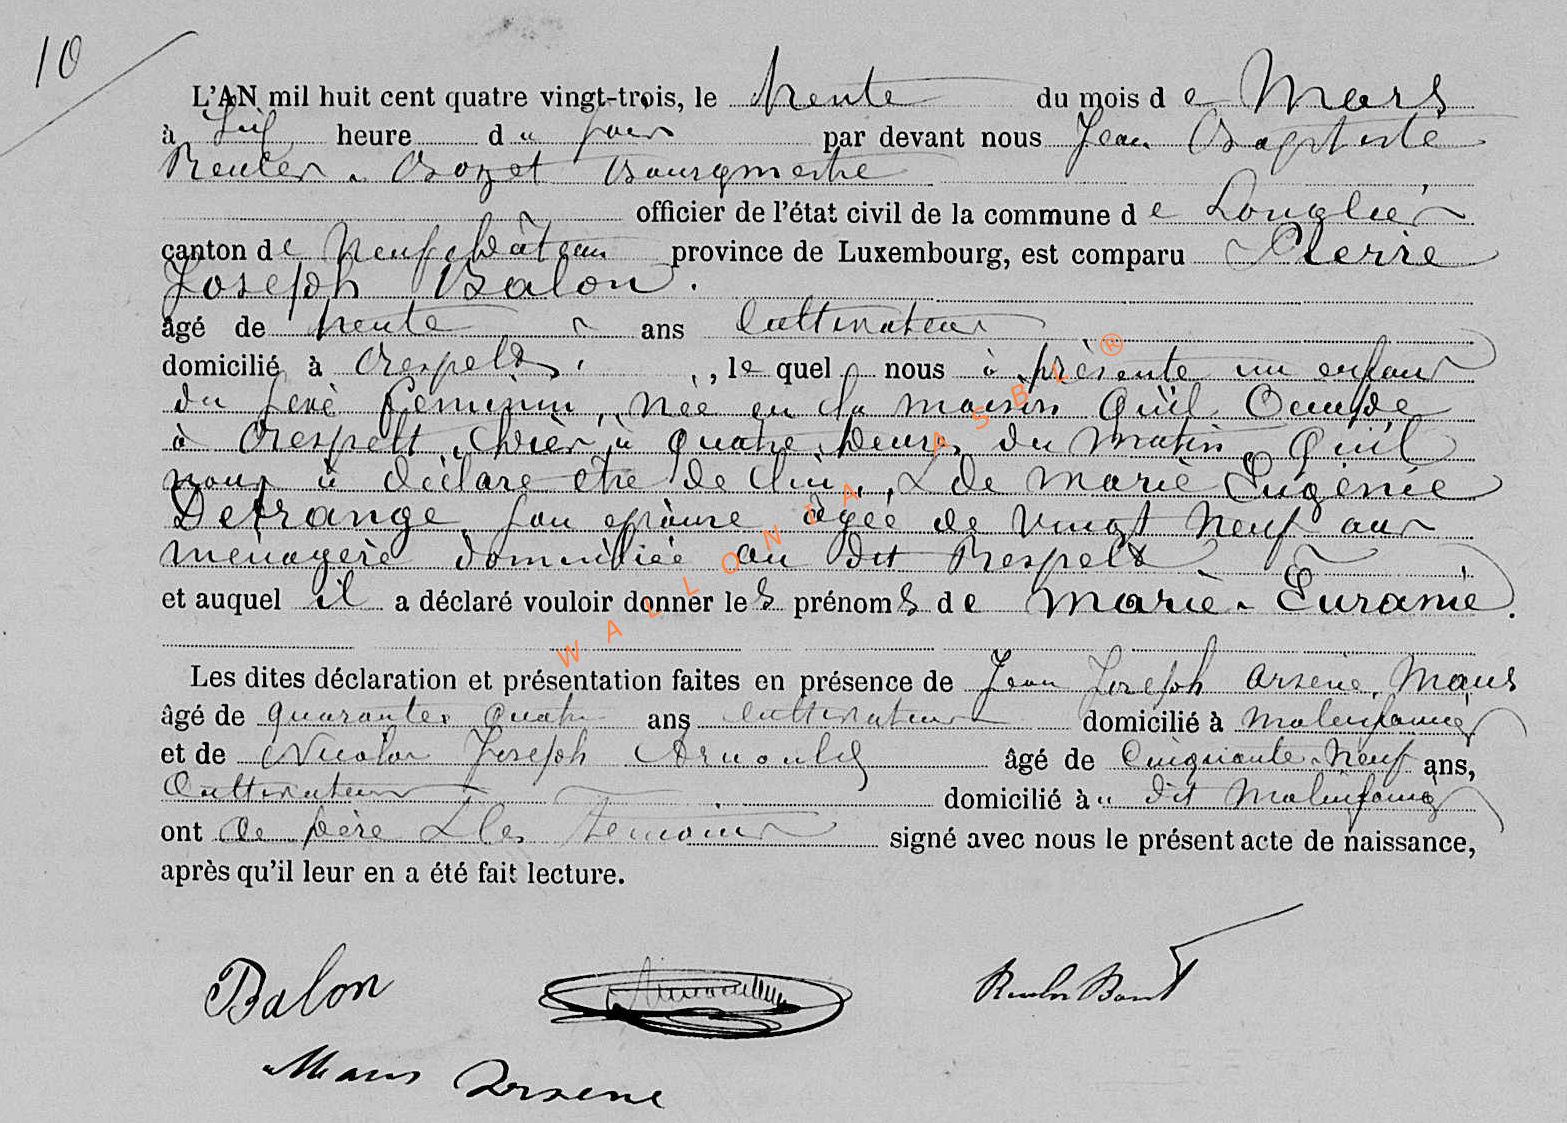 10
L'AN mil huit cent quatre vingt-trois, le trente du mois de Mars
à heure du jour par devant nous Jean Baptiste
Reuter Bozet Bourgmestre
officier de l'état civil de la commune de Longlier
canton de Neufchâteau province de Luxembourg, est comparu Pierre
Joseph Balon.
âgé de trente ans Cultivateur
domicilié à Respelt, le quel nous à présenté un enfant
du sexe féminin, née en la maison qu'il occupe
à Respelt, hier à quatre heures du matin qu'il
nous à déclaré être de lui, & de Marie Eugénie
Detrange son épouse âgée de vingt neuf ans
ménagère domiciliée au dit Respelt
et auquel il a déclaré vouloir donner les prénoms de Marie-Euranie.
Les dites déclaration et présentation faites en présence de Jean Joseph Arsène Maus
âgé de quarante quatre ans Cultivateur domicilié à Molinfaing
et de Nicolas Joseph Arnould âgé de Cinquante-Neuf ans,
Cultivateur domicilié à u dit Molinfaing
ont le père & les témoins signé avec nous le présent acte de naissance,
après qu'il leur en a été fait lecture.
Balon
Reuter Bozet
Maus Arsene
WALLONIA ASBL ®